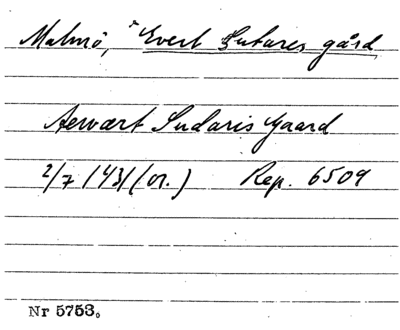 Malmö, x Evert Sutares gård
Aewært Sudaris Gaard
2/7 1431 (or.) Rep. 6509
Nr 5753.